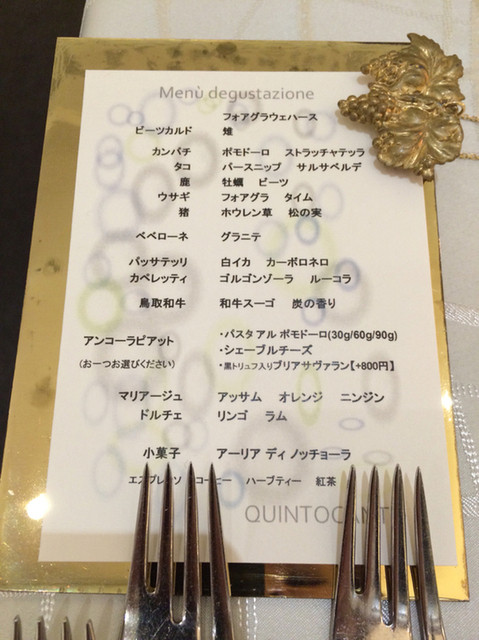 Menù degustazione
フォアグラウェハース
ビーツカルド 雉
カンパチ ポモドーロ ストラッチャテッラ
タコ パースニップ サルサベルデ
鹿 牡蠣 ビーツ
ウサギ フォアグラ タイム
猪 ホウレン草 松の実
ペペローネ グラニテ
パッサテッリ 白イカ カーボロネロ
カペレッティ ゴルゴンゾーラ ルーコラ
鳥取和牛 和牛スーゴ 炭の香り
アンコーラピアット ・パスタ アル ポモドーロ(30g/60g/90g)
(お一つお選びください) ・シェーブルチーズ
・黒トリュフ入りブリアサヴァラン【+800円】
マリアージュ アッサム オレンジ ニンジン
ドルチェ リンゴ ラム
小菓子 アーリア ディ ノッチョーラ
エスプレッソ コーヒー ハーブティー 紅茶